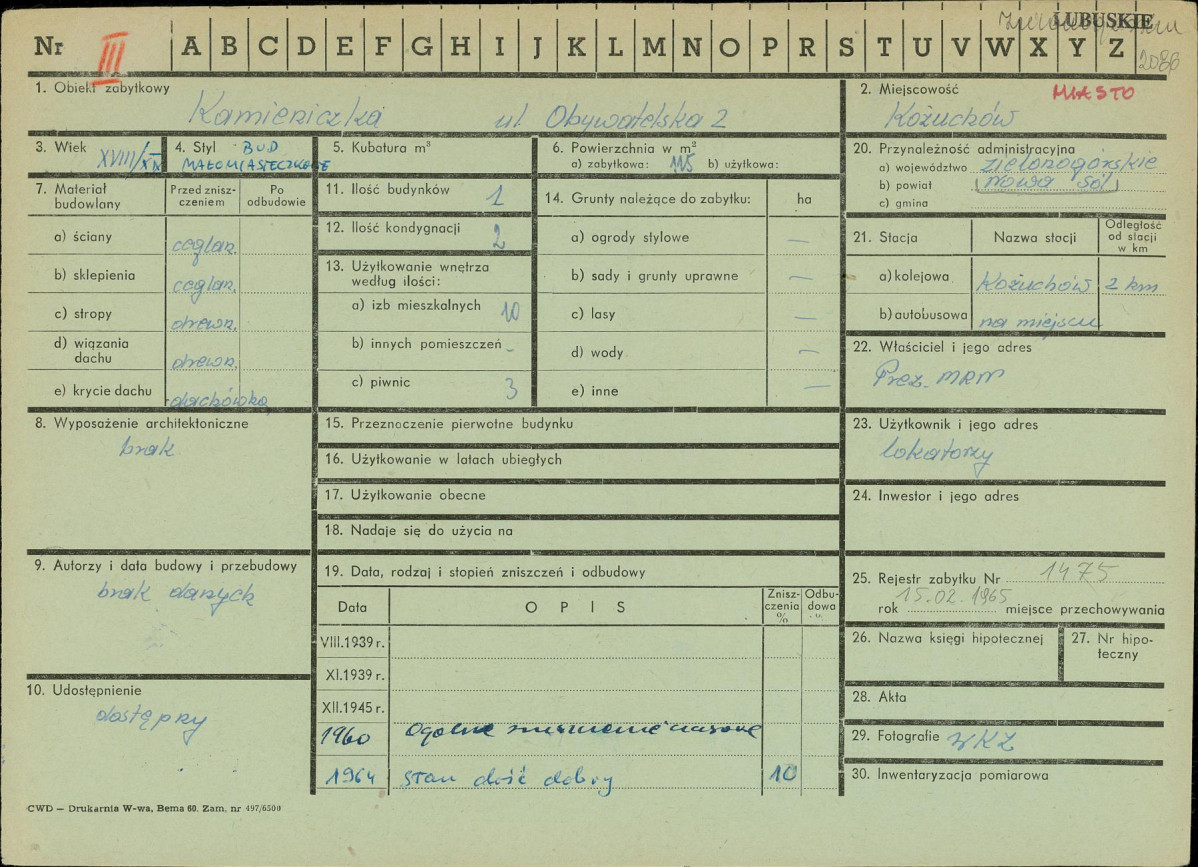 LUBUSKIE
2086
Nr III A B C D E F G H I J K L M N O P R S T U V W X Y Z
1. Obiekt zabytkowy
Kamieniczka ul. Obywatelska 2
2. Miejscowość MIASTO
Kożuchów
3. Wiek XVIII/XIX
4. Styl BUD
MAŁOMIASTECZKOWE
5. Kubatura m³
6. Powierzchnia w m²
a) zabytkowa: 115 b) użytkowa:
7. Materiał budowlany
Przed zniszczeniem
Po odbudowie
a) ściany ceglan.
b) sklepienia ceglan.
c) stropy drewn.
d) wiązania dachu drewn.
e) krycie dachu dachówka
8. Wyposażenie architektoniczne
brak
9. Autorzy i data budowy i przebudowy
brak danych
10. Udostępnienie
dostępny
11. Ilość budynków 1
12. Ilość kondygnacji 2
13. Użytkowanie wnętrza
według ilości:
a) izb mieszkalnych 10
b) innych pomieszczeń -
c) piwnic 3
14. Grunty należące do zabytku: ha
a) ogrody stylowe —
b) sady i grunty uprawne —
c) lasy —
d) wody —
e) inne —
15. Przeznoczenie pierwotne budynku
16. Użytkowanie w latach ubiegłych
17. Użytkowanie obecne
18. Nadaje się do użycia na
19. Data, rodzaj i stopień zniszczeń i odbudowy
Data OPIS Zniszczenia % Odbudowa %
VIII.1939 r.
XI.1939 r.
XII.1945 r.
1960 ogólne zniszczenie
1964 stan dość dobry 10
20. Przynależność administracyjna
a) województwo zielonogórskie
b) powiat (Nowa Sól)
c) gmina
21. Stacja Nazwa stacji Odległość od stacji w km
a) kolejowa Kożuchów 2 km
b) autobusowa na miejscu
22. Właściciel i jego adres
Prez. MRN
23. Użytkownik i jego adres
lokatorzy
24. Inwestor i jego adres
25. Rejestr zabytku Nr 1475
rok 15.02.1965 miejsce przechowywania
26. Nazwa księgi hipotecznej
27. Nr hipoteczny
28. Akta
29. Fotografie WKZ
30. Inwentaryzacja pomiarowa
CWD — Drukarnia W-wa, Bema 60. Zam. nr 497/6500